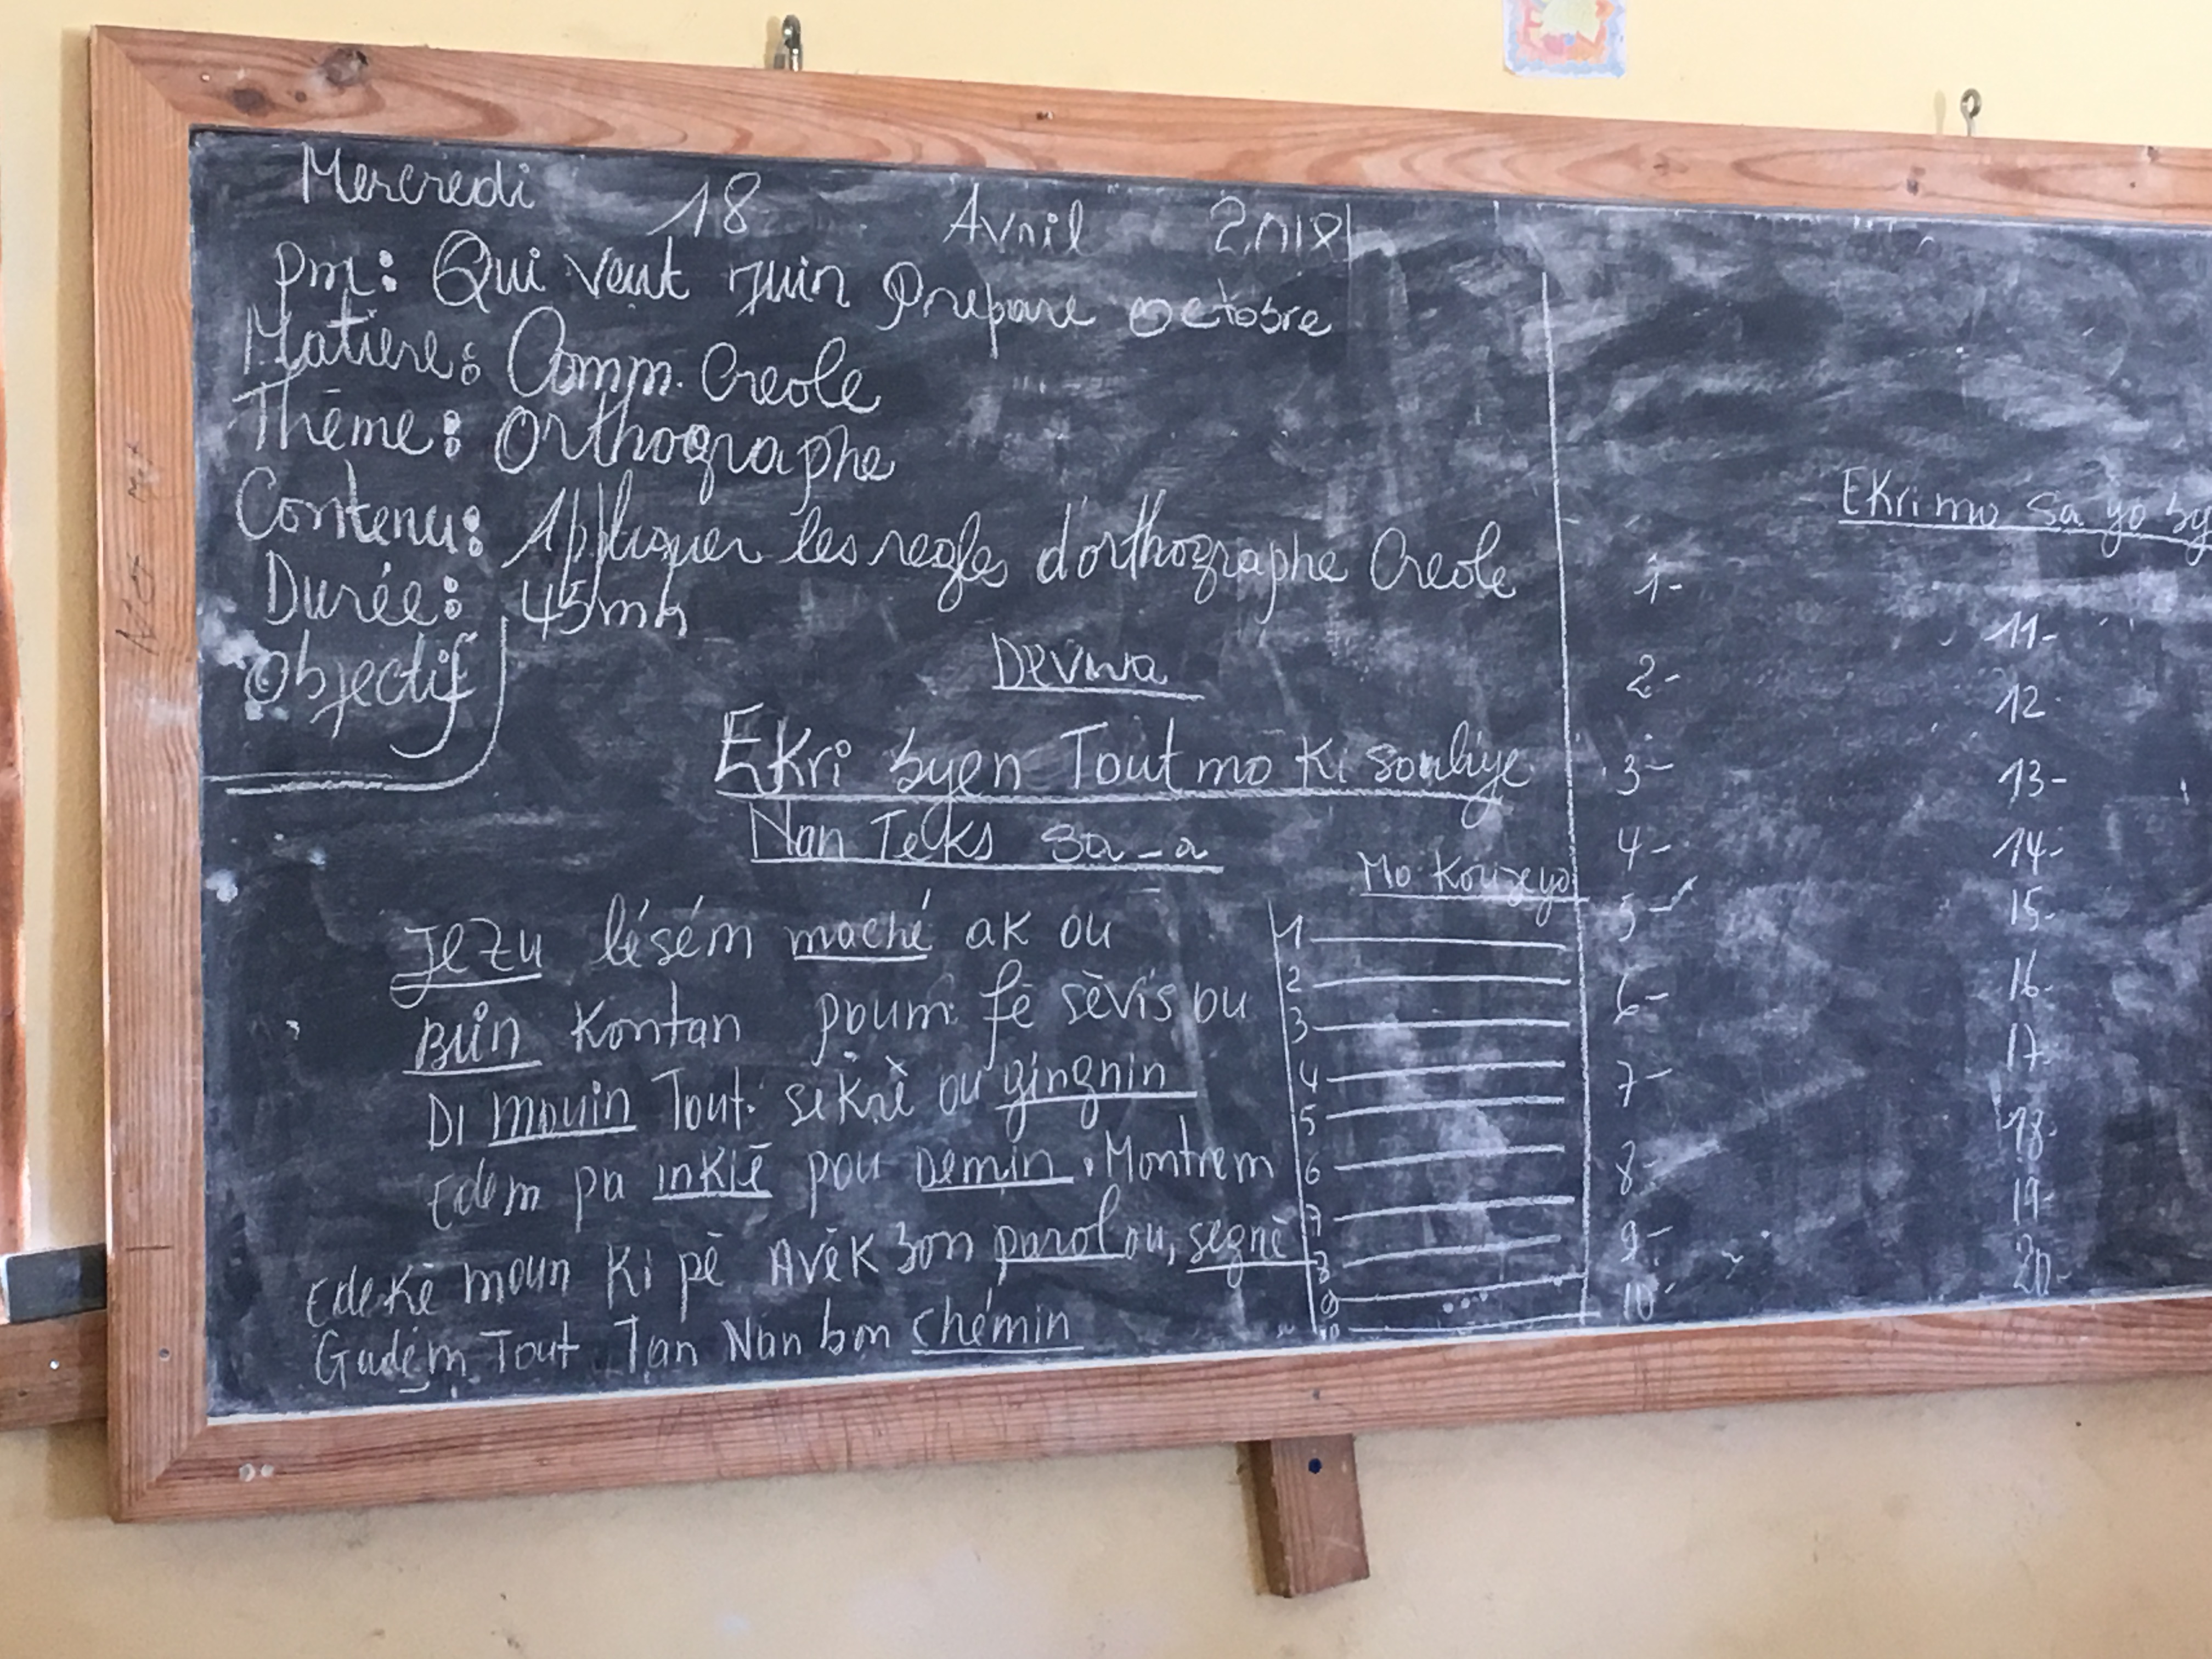 Mercredi 18 Avril 2018
Pm: Qui veut juin Prepare octobre
Matière: Comm. Creole
Thème: Orthographe
Contenu: Appliquer les regles d'orthographe Creole
Durée: 45mn
Objectif
Devwa
EKri byen Tout mo Ki souliye
Nan Teks sa-a
Jezu lésém maché ak ou
Biin Kontan poum fè sèvis ou
Di mouin Tout sékrè ou gingnin
Edem pa inKlè pou Demin. Montrem
Ede Kè moun Ki pè Avèk bon parol ou, segnè
Gadém Tout Tan Nan bon chémin
Mo Korije yo
1
2
3
4
5
6
7
8
9
10
EKri mo sa yo by
1-
2-
3-
4-
5-
6-
7-
8-
9-
10-
11-
12-
13-
14-
15-
16-
17-
18-
19-
20-